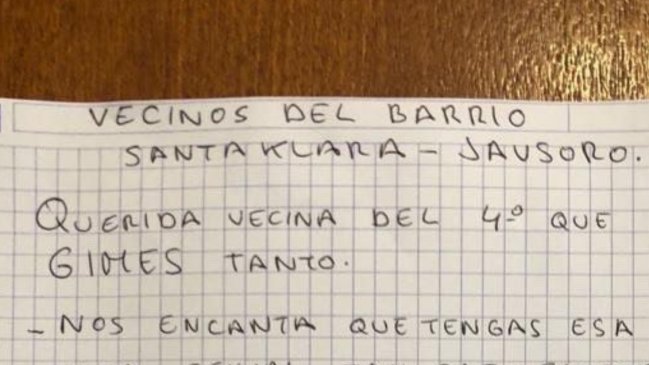 VECINOS DEL BARRIO
SANTA KLARA - JAUSORO.
QUERIDA VECINA DEL 4º QUE
GIMES TANTO.
- NOS ENCANTA QUE TENGAS ESA